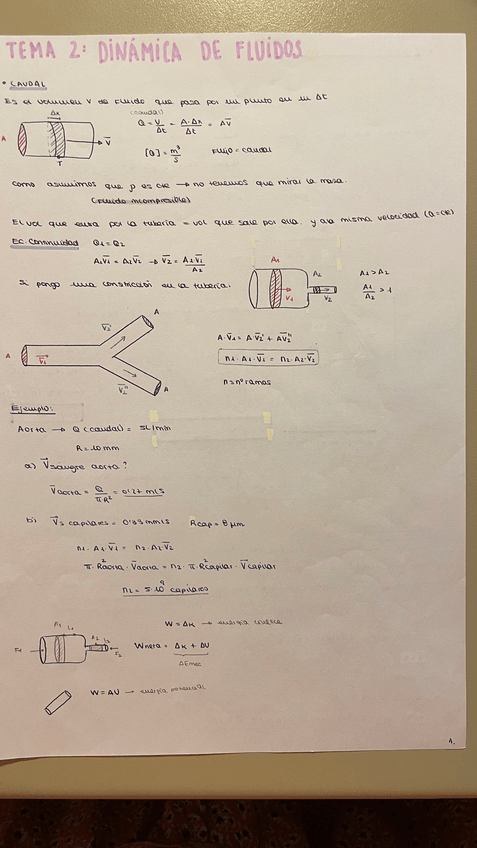 TEMA 2: DINÁMICA DE FLUIDOS
• CAUDAL
Es el volumen V de fluido que pasa por un punto en un Δt
(caudal)
Q = V/Δt = A·Δx/Δt = A v̄
Δx
A
v̄
T
[Q] = m³/s
FLUJO = caudal
como asumimos que ρ es cte → no tenemos que mirar la masa.
(fluido incompresible)
El vol que entra por la tubería = vol que sale por ella. y a la misma velocidad (Q=cte)
Ec. Continuidad Q1 = Q2
A1v̄1 = A2v̄2 → v̄2 = A1v̄1/A2
Si pongo una constricción en la tubería.
A1
A2
v1
v2
A1 > A2
A1/A2 > 1
A
v̄1
v̄2'
A
v̄2''
A
A·v̄1 = A v̄2' + A v̄2''
n1·A1·v̄1 = n2·A2·v̄2
n = nº ramas
Ejemplo:
Aorta → Q (caudal) = 5L/min
R = 10mm
a) v̄sangre aorta?
v̄aorta = Q/π·R² = 0'27 m/s
b) v̄s capilares = 0'33 mm/s Rcap = 8 μm
n1·A1·v̄1 = n2·A2·v̄2
π·R²aorta·v̄aorta = n2·π·R²capilar·v̄capilar
n2 = 5·10⁹ capilares
A1
L1
A2
L2
F1
F2
W = ΔK → energía cinética
Wneta = ΔK + ΔU
ΔEmec
W = ΔU → energía potencial
1.